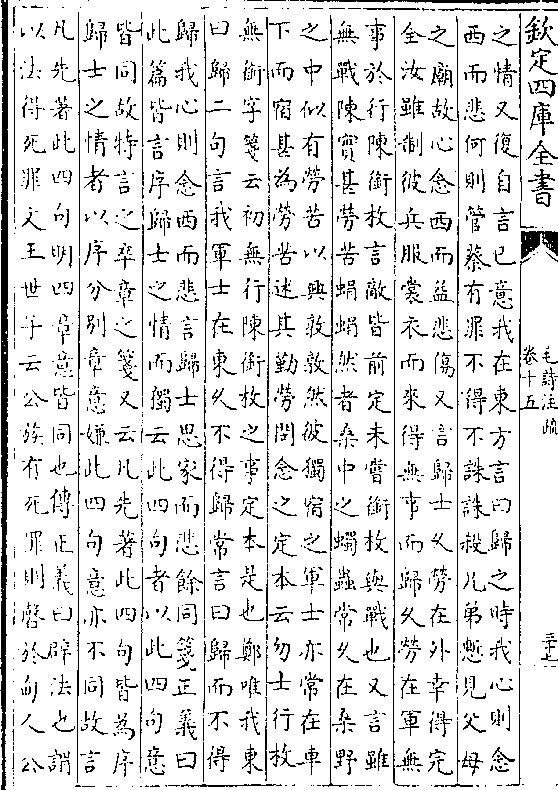 欽定四庫全書
毛詩注疏
卷十五
之情又復自言已意我在東方言曰歸之時我心則念
西而悲何則管蔡有罪不得不誅誅殺兄弟慙見父母
之廟故心念西而益悲傷又言歸士久勞在外幸得完
全汝雖制彼兵服裳衣而來得無事而歸久勞在軍無
事於行陳銜枚言敵皆前定未嘗銜枚與戰也又言雖
無戰陳實甚勞苦蜎蜎然者桑中之蠋蟲常久在桑野
之中似有勞苦以興敦敦然彼獨宿之軍士亦常在車
下而宿甚為勞苦述其勤勞閔念之定本云勿士行枚
無銜字箋云初無行陳銜枚之事定本是也鄭唯我東
曰歸二句言我軍士在東久不得歸常言曰歸而不得
歸我心則念西而悲言歸士思家而悲餘同箋正義曰
此篇皆言序歸士之情而獨云此四句者以此四句意
皆同故特言之卒章之箋又云凡先著此四句皆為序
歸士之情者以序分別章意嫌此四句意亦不同故言
凡先著此四句明四章意皆同也傳正義曰辟法也謂
以法得死罪文王世子云公族有死罪則磬於甸人公